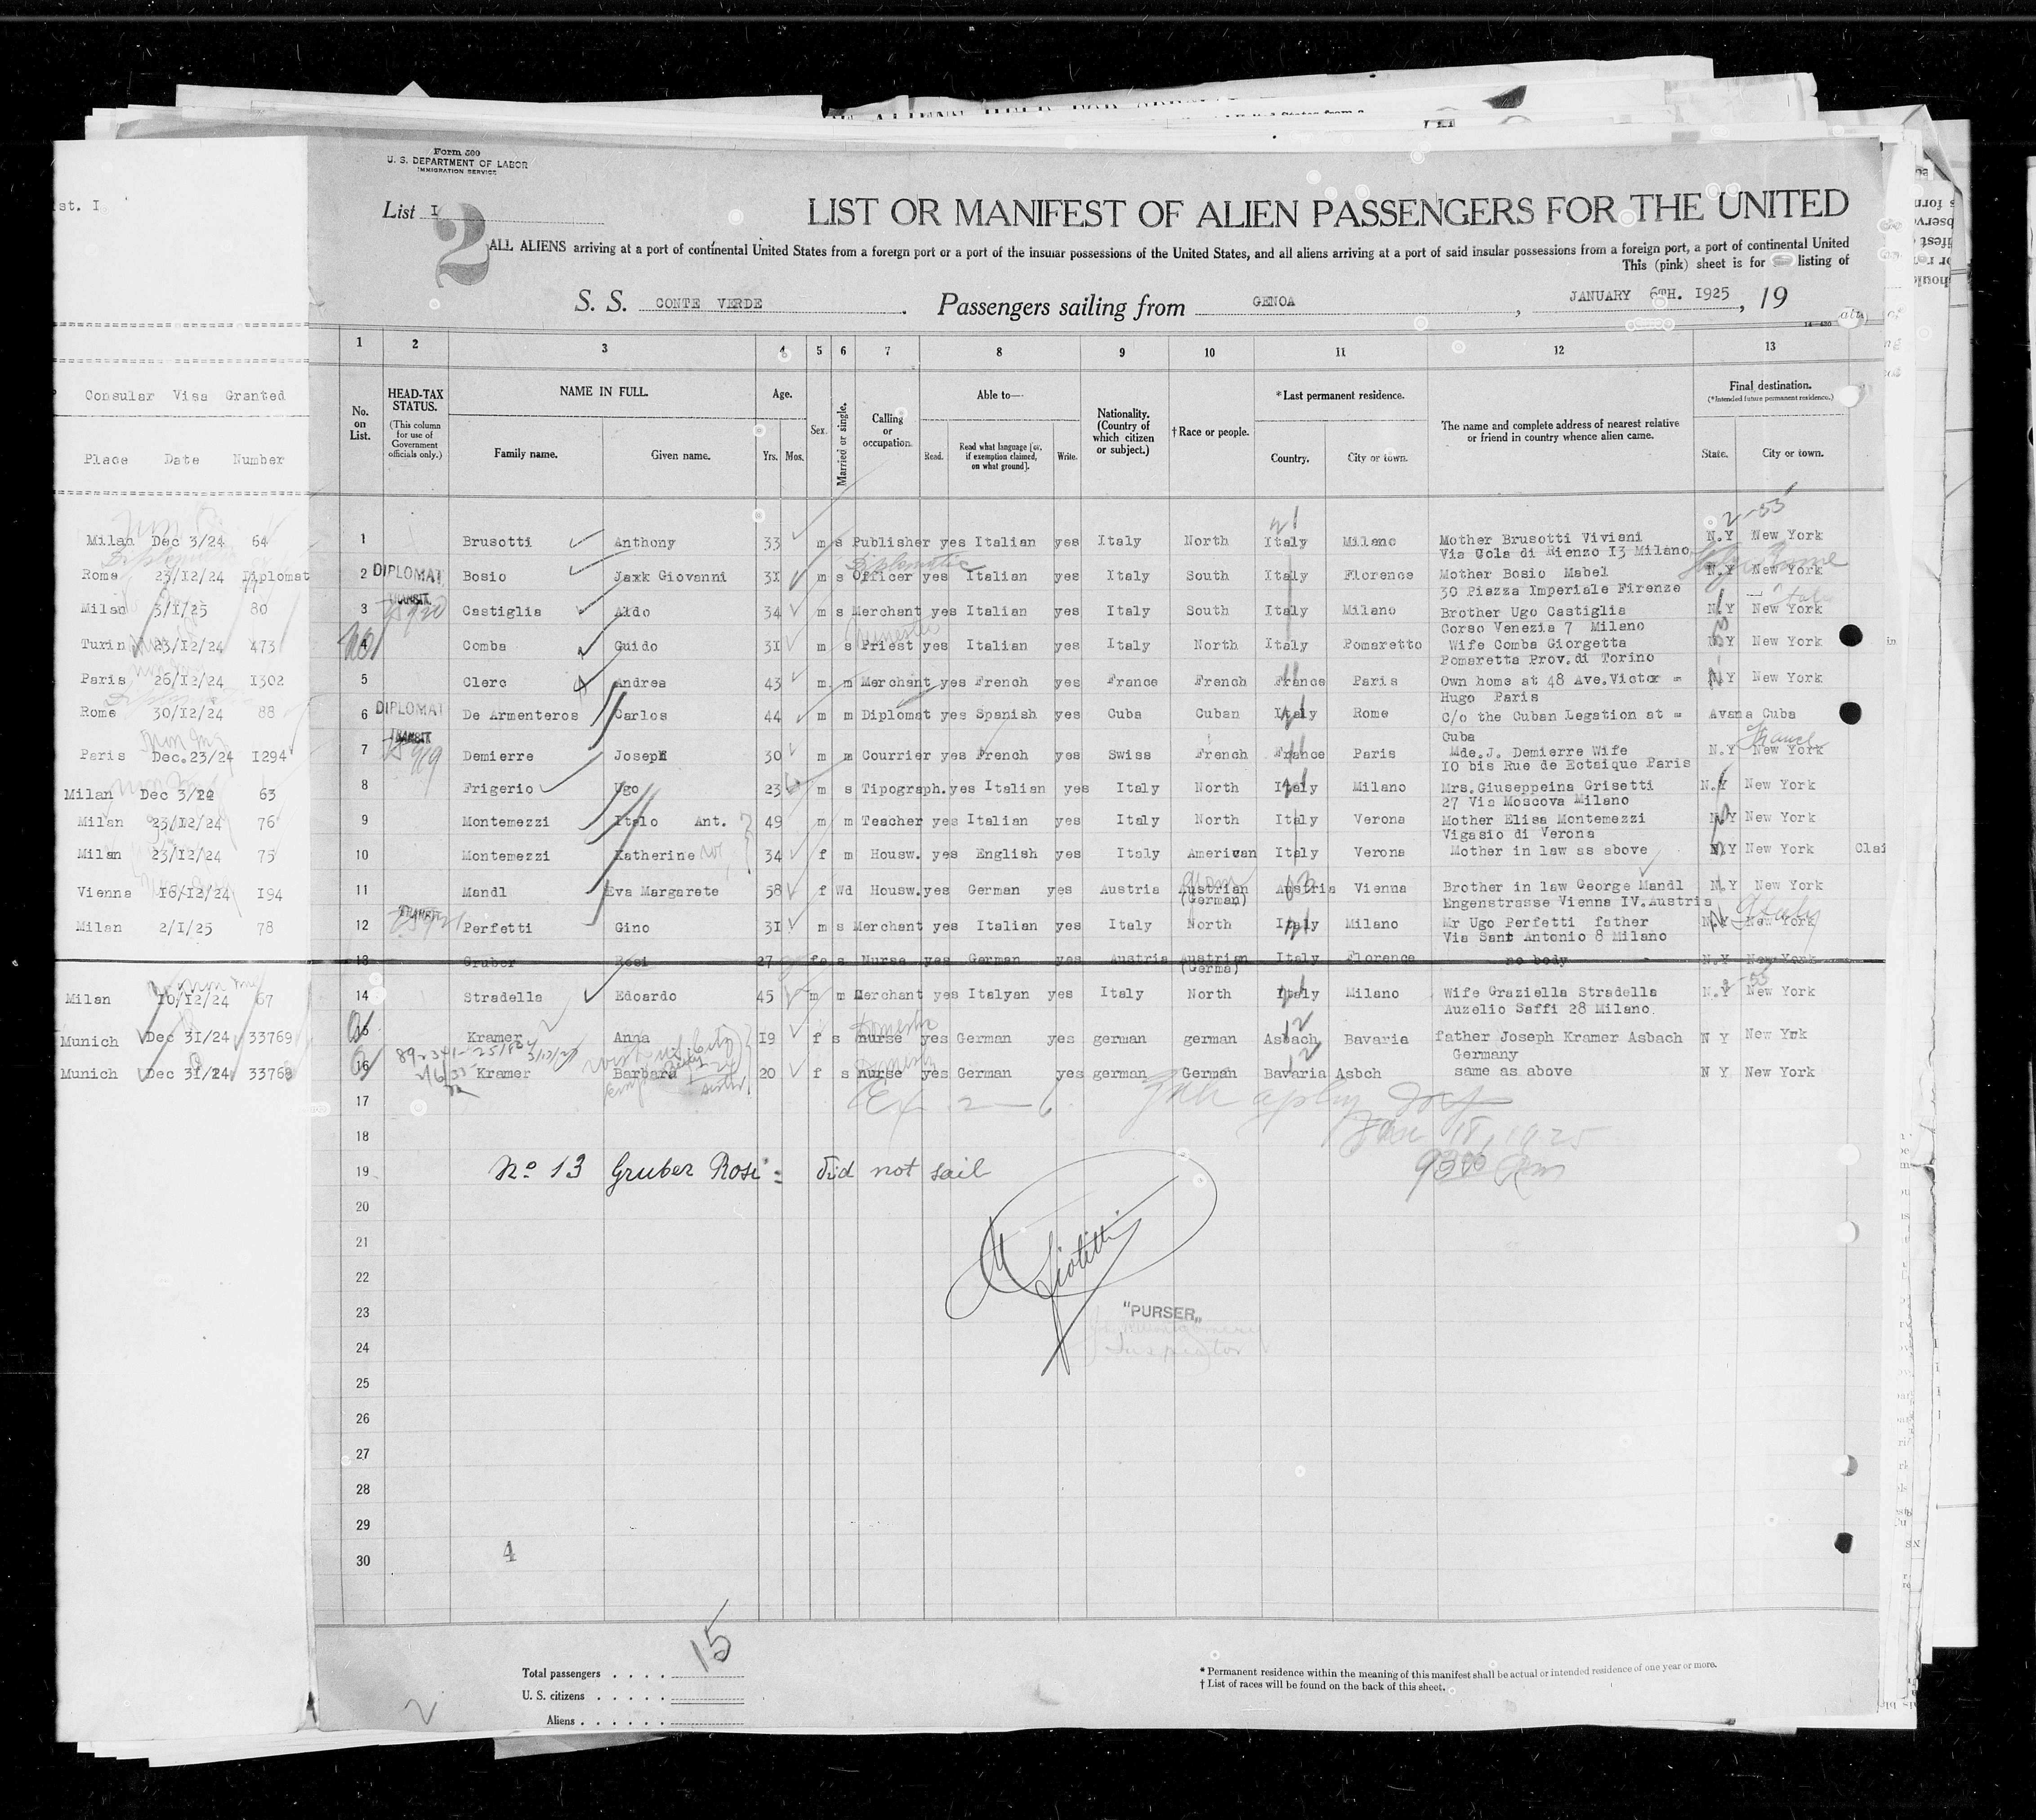 Form 500
U. S. DEPARTMENT OF LABOR
IMMIGRATION SERVICE
st. I.
List I
2
LIST OR MANIFEST OF ALIEN PASSENGERS FOR THE UNITED
ALL ALIENS arriving at a port of continental United States from a foreign port or a port of the insular possessions of the United States, and all aliens arriving at a port of said insular possessions from a foreign port, a port of continental United
This (pink) sheet is for listing of
S. S. CONTE VERDE. Passengers sailing from GENOA, JANUARY 6TH. 1925, 19
14-430
1 2 3 4 5 6 7 8 9 10 11 12 13
Consular Visa Granted
Place Date Number
No. on List.
HEAD-TAX STATUS.
(This column for use of Government officials only.)
NAME IN FULL.
Family name.
Given name.
Age.
Yrs. Mos.
Sex.
Married or single.
Calling or occupation.
Able to—
Read.
Read what language [or, if exemption claimed, on what ground].
Write.
Nationality. (Country of which citizen or subject.)
† Race or people.
* Last permanent residence.
Country.
City or town.
The name and complete address of nearest relative or friend in country whence alien came.
Final destination.
(* Intended future permanent residence.)
State.
City or town.
2-55
Milan Dec 3/24 64 1 Brusotti Anthony 33 m s Publisher yes Italian yes Italy North Italy Milano Mother Brusotti Viviani N.Y New York
Via Cola di Rienzo I3 Milano
Diplomatic
Rome 23/12/24 Diplomat 2 DIPLOMAT Bosio Jaxk Giovanni 3I m s Officer yes Italian yes Italy South Italy Florence Mother Bosio Mabel N.Y New York
30 Piazza Imperiale Firenze
TRANSIT
Milan 3/I/25 80 3 Castiglia Aldo 34 m s Merchant yes Italian yes Italy South Italy Milano Brother Ugo Castiglia N.Y New York
Corso Venezia 7 Milano
Turin 23/I2/24 473 4 Comba Guido 3I m s Priest yes Italian yes Italy North Italy Pomaretto Wife Comba Giorgetta N.Y New York
Pomaretta Prov.di Torino
Paris 26/I2/24 I302 5 Clerc Andrea 43 m m Merchant yes French yes France French France Paris Own home at 48 Ave.Victor = N.Y New York
Hugo Paris
Rome 30/I2/24 88 6 DIPLOMAT De Armenteros Carlos 44 m m Diplomat yes Spanish yes Cuba Cuban Italy Rome c/o the Cuban Legation at = Avana Cuba
Cuba
TRANSIT
France
Paris Dec.23/24 I294 7 Demierre Joseph 30 m m Courrier yes French yes Swiss French France Paris Mde.J. Demierre Wife N.Y New York
I0 bis Rue de Ectaique Paris
Milan Dec 3/22 63 8 Frigerio Ugo 23 m s Tipograph.yes Italian yes Italy North Italy Milano Mrs.Giuseppeina Grisetti N.Y New York
27 Via Moscova Milano
Milan 23/I2/24 76 9 Montemezzi Italo Ant. 49 m m Teacher yes Italian yes Italy North Italy Verona Mother Elisa Montemezzi N.Y New York
Vigasio di Verona
Milan 23/I2/24 75 10 Montemezzi Katherine 34 f m Housw. yes English yes Italy American Italy Verona Mother in law as above N.Y New York Clai
Vienna I6/I2/24 I94 11 Mandl Eva Margarete 58 f Wd Housw.yes German yes Austria Austrian Austria Vienna Brother in law George Mandl N.Y New York
(German) Engenstrasse Vienna IV.Austria
TRANSIT
Italy
Milan 2/I/25 78 12 Perfetti Gino 3I m s Merchant yes Italian yes Italy North Italy Milano Mr Ugo Perfetti father N.Y New York
Via Sant Antonio 8 Milano
13 Gruber Rosi 27 fe s Nurse yes German yes Austria Austrian Italy Florence no body N.Y New York
(Germa)
Milan I0/I2/24 67 14 Stradella Edoardo 45 m m Merchant yes Italyan yes Italy North Italy Milano Wife Graziella Stradella N.Y New York
Auzelio Saffi 28 Milano.
Domestic
Munich Dec 3I/24 33769 15 Kramer Anna I9 f s nurse yes German yes german german Asbach Bavaria father Joseph Kramer Asbach N Y New York
Germany
Munich Dec 3I/24 33768 16 Kramer Barbara 20 f s nurse yes German yes german German Bavaria Asbch same as above N Y New York
17
18
Jan 18, 1925
19 No 13 Gruber Rosi = Did not sail
930
20
21
22
23
"PURSER„
Inspector
24
25
26
27
28
29
30
4
15
Total passengers . . . .
U. S. citizens . . . . .
Aliens . . . . . .
* Permanent residence within the meaning of this manifest shall be actual or intended residence of one year or more.
† List of races will be found on the back of this sheet.